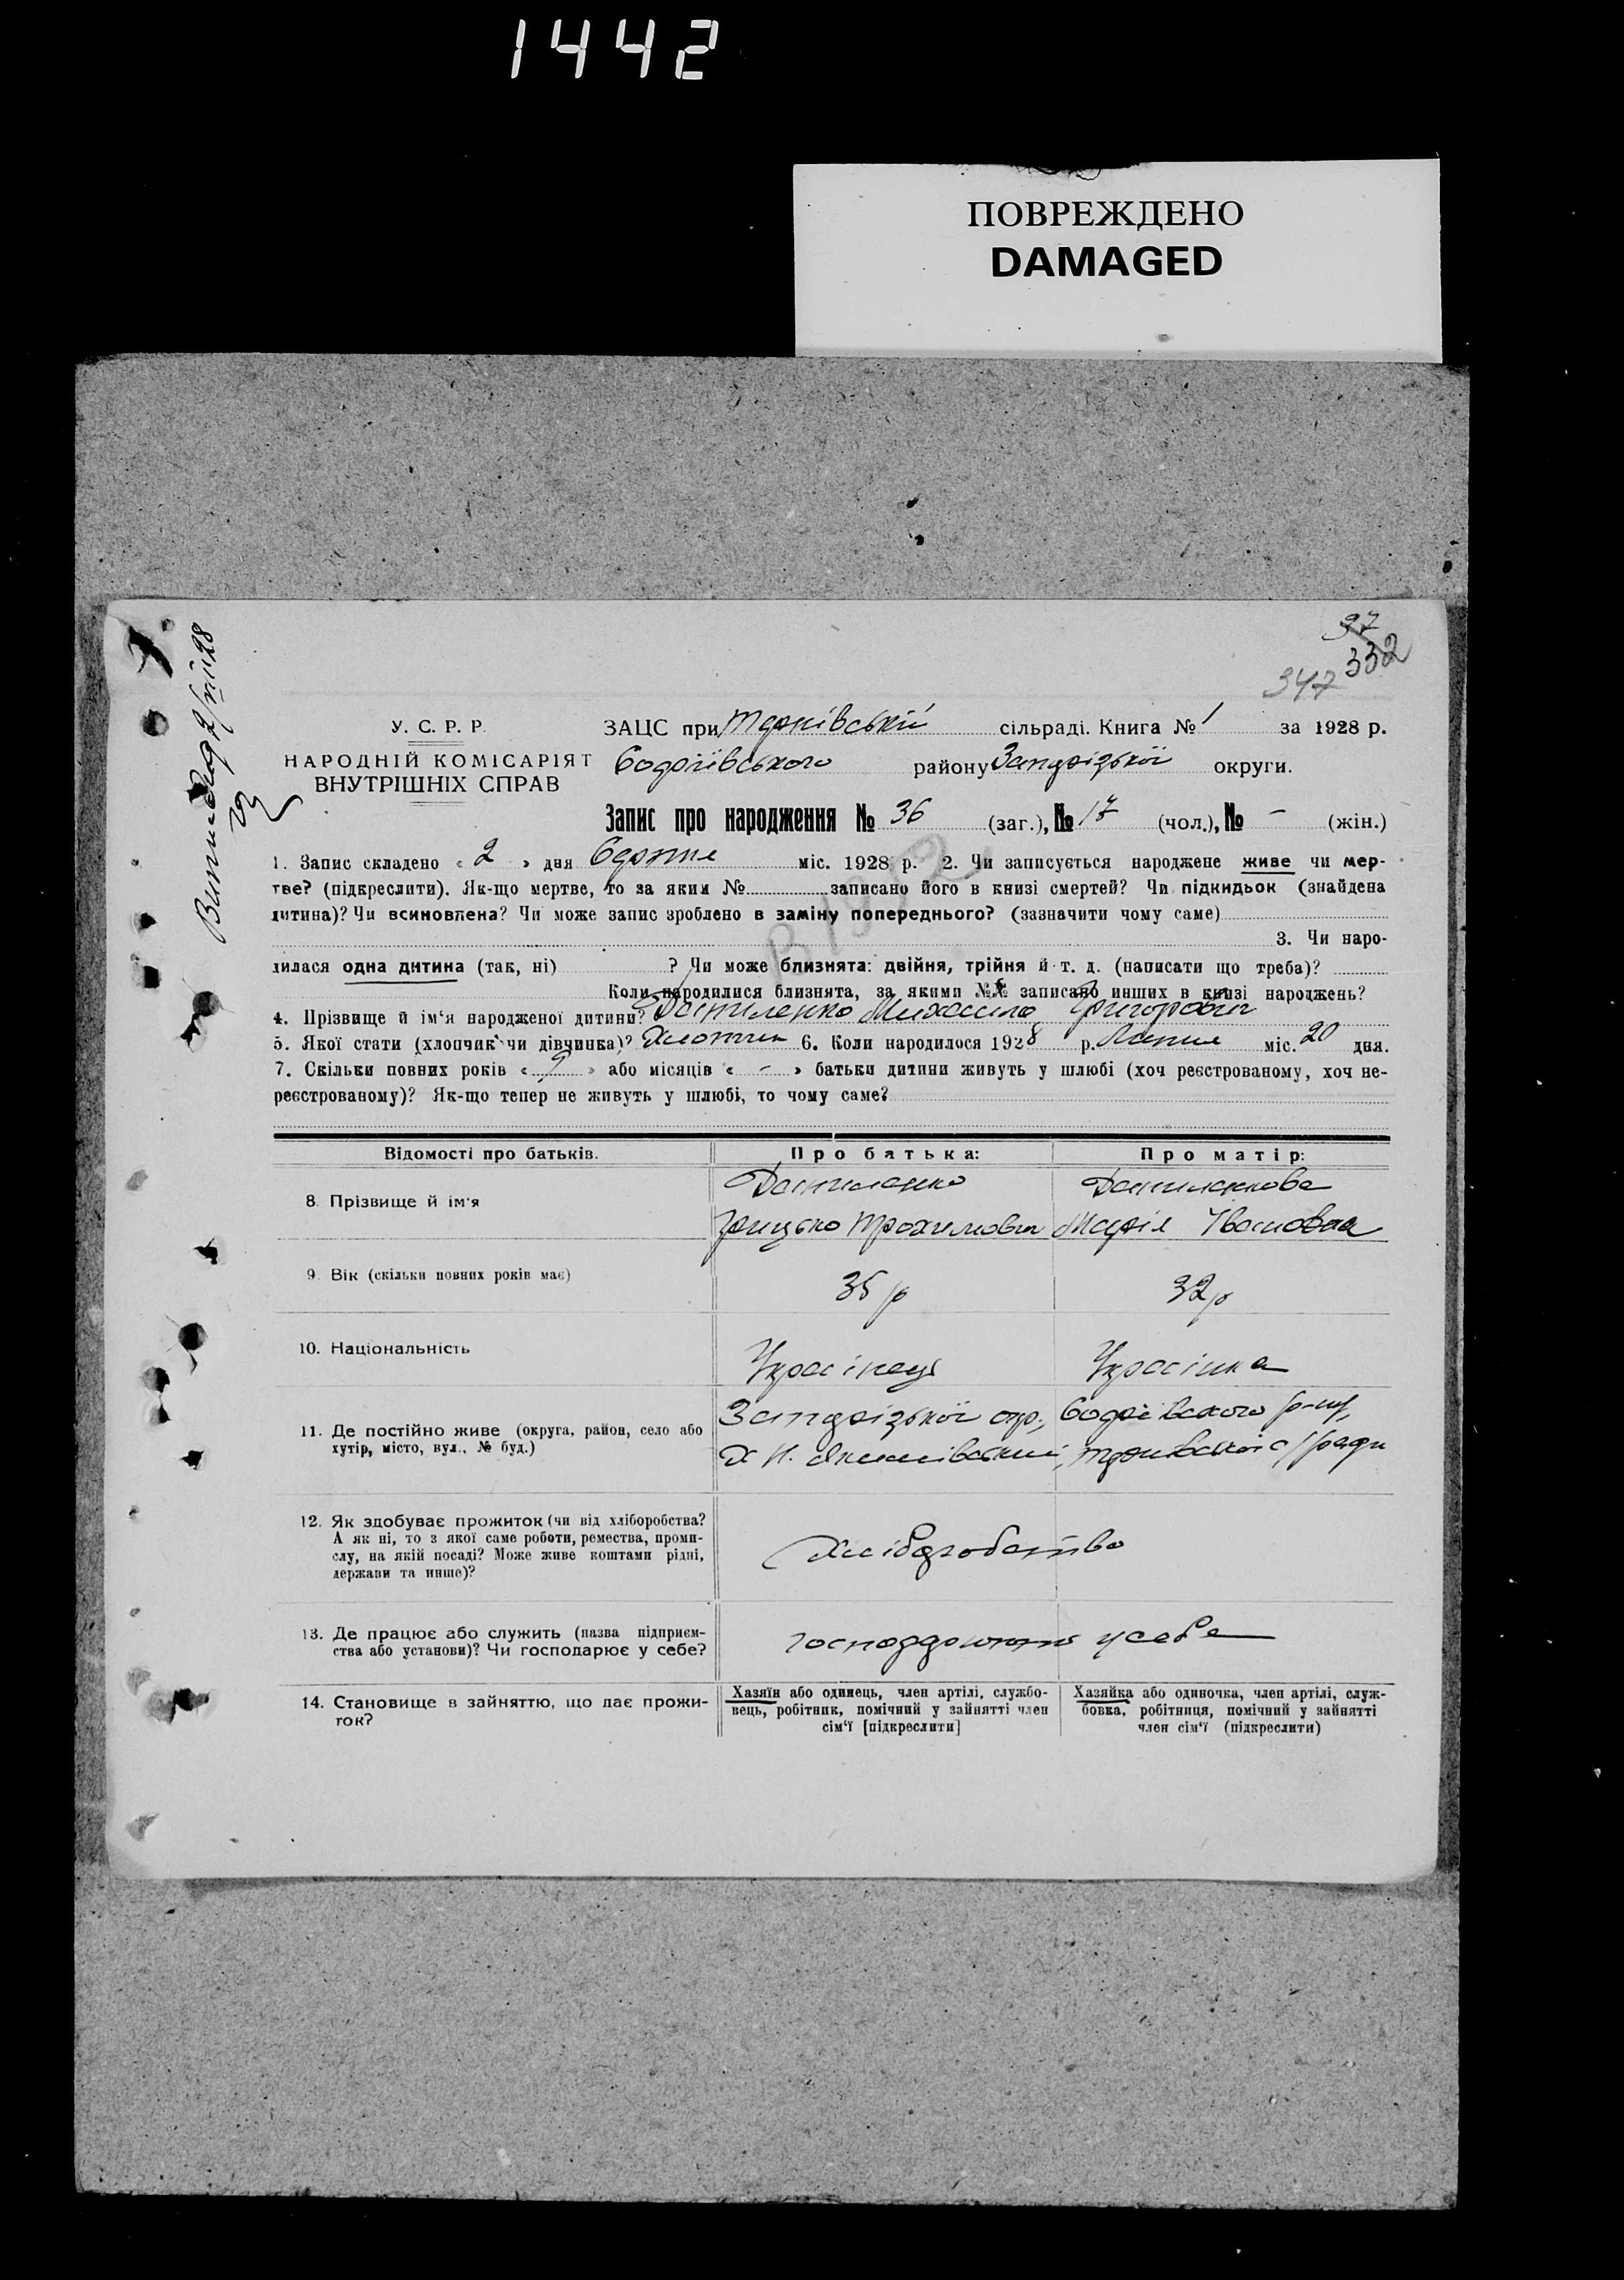 1442
ПОВРЕЖДЕНО
DAMAGED
37
332
347
У. С. Р. Р.
НАРОДНІЙ КОМІСАРІЯТ
ВНУТРІШНІХ СПРАВ
ЗАЦС при сільраді. Книга № 1 за 1928 р.
району Запорізької округи.
Запис про народження № 36 (заг.), № 17 (чол.), № - (жін.)
1. Запис складено « 2 » дня Серпня міс. 1928 р. 2. Чи записується народжене живе чи мер-
тве? (підкреслити). Як-що мертве, то за яким № записано його в книзі смертей? Чи підкидьок (знайдена
дитина)? Чи всиновлена? Чи може запис зроблено в заміну попереднього? (зазначити чому саме)
3. Чи наро-
дилася одна дитина (так, ні) ? Чи може близнята: двійня, трійня й т. д. (написати що треба)?
Коли народилися близнята, за якими №№ записано инших в книзі народжень?
4. Прізвище й ім'я народженої дитини? Даниленко Михайло Григорович
5. Якої стати (хлопчик чи дівчинка)? Хлопчик 6. Коли народилося 1928 р. Липня міс. 20 дня.
7. Скільки повних років « 9 » або місяців « - » батьки дитини живуть у шлюбі (хоч реєстрованому, хоч не-
реєстрованому)? Як-що тепер не живуть у шлюбі, то чому саме?
Відомості про батьків. Про батька: Про матір:
8. Прізвище й ім'я
Даниленко Даниленкова
Грицько Трохимович Марія Івановна
9. Вік (скільки повних років має) 35 р 32 р
10. Національність Українець Українка
11. Де постійно живе (округа, район, село або
хутір, місто, вул., № буд.)
Запорізької окр.,
12. Як здобуває прожиток (чи від хліборобства?
А як ні, то з якої саме роботи, ремества, проми-
слу, на якій посаді? Може живе коштами рідні,
держави та инше)?
Хліборобство
13. Де працює або служить (назва підприєм-
ства або установи)? Чи господарює у себе?
у себе
14. Становище в зайняттю, що дає прожи-
ток?
Хазяїн або одинець, член артілі, службо-
вець, робітник, помічний у зайнятті член
сім'ї [підкреслити]
Хазяйка або одиночка, член артілі, служ-
бовка, робітниця, помічний у зайнятті
член сім'ї (підкреслити)